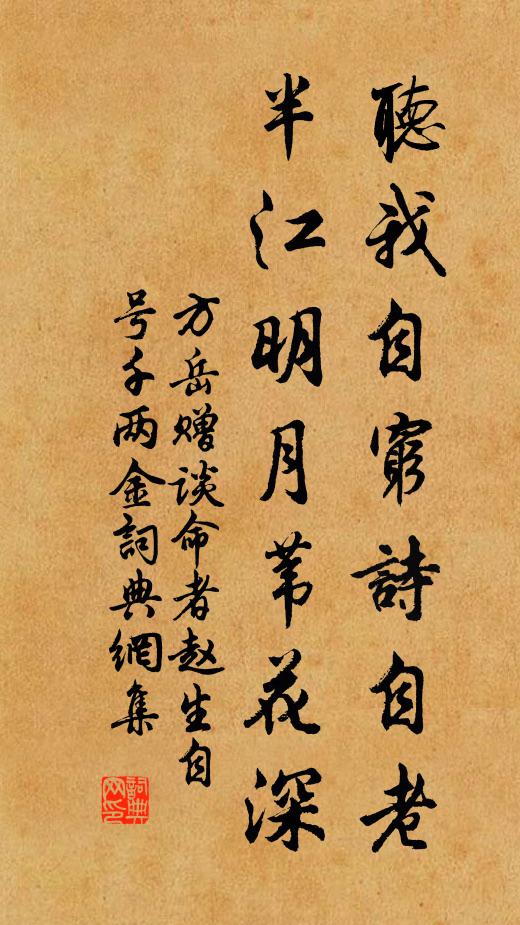 聽我自窮詩自老
半江明月苇花深
方岳赠谈命者赵生自
号千两金詞典網集
詞典网印